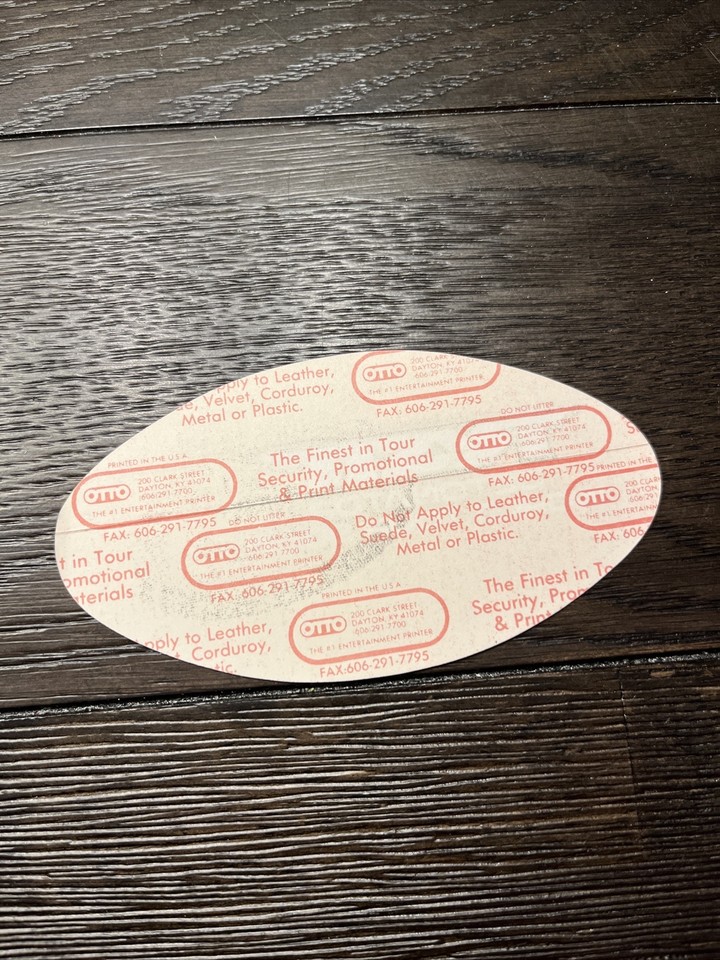 pply to Leather,
e, Velvet, Corduroy,
Metal or Plastic.
OTTO
200 CLARK
DAYTON, KY 41074
606-291-7700
THE #1 ENTERTAINMENT PRINTER
FAX: 606-291-7795
DO NOT LITTER
OTTO
200 CLARK STREET
DAYTON, KY 41074
606-291-7700
THE #1 ENTERTAINMENT PRINTER
FAX: 606-291-7795
The Finest in Tour
Security, Promotional
& Print Materials
PRINTED IN THE U.S.A.
OTTO
200 CLARK STREET
DAYTON, KY 41074
606-291-7700
THE #1 ENTERTAINMENT PRINTER
FAX: 606-291-7795
PRINTED IN THE
OTTO
200 CLARK
DAYTON,
606-291
THE #1 ENTERTAINM
FAX: 606-
Do Not Apply to Leather,
Suede, Velvet, Corduroy,
Metal or Plastic.
DO NOT LITTER
OTTO
200 CLARK STREET
DAYTON, KY 41074
606-291-7700
THE #1 ENTERTAINMENT PRINTER
FAX: 606-291-7795
t in Tour
omotional
aterials
PRINTED IN THE U.S.A.
OTTO
200 CLARK STREET
DAYTON, KY 41074
606-291-7700
THE #1 ENTERTAINMENT PRINTER
FAX: 606-291-7795
The Finest in To
Security, Prom
& Print
pply to Leather,
t, Corduroy,
tic.